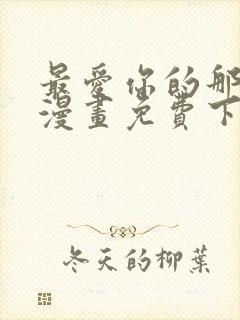 最愛你的那
漫畫免費下
冬天的柳葉